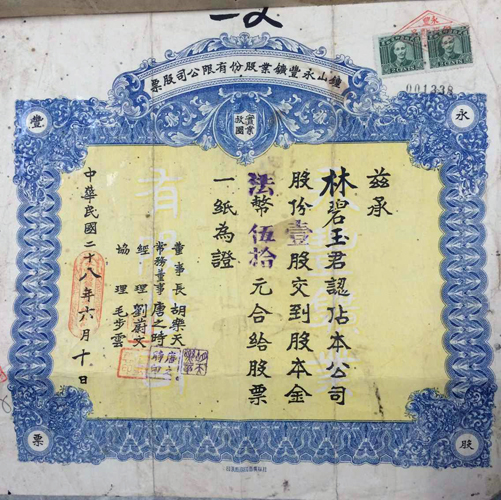 山永豐鑛業股份有限公司股票
001338
永豐
實業救國
茲承
林碧玉君認占本公司
股份壹股交到股本金
法幣伍拾元合給股票
一紙為證
董事長胡樂天
常務董事唐之時
經理劉蔚文
協理毛步雲
中華民國二十八年六月十日
股票